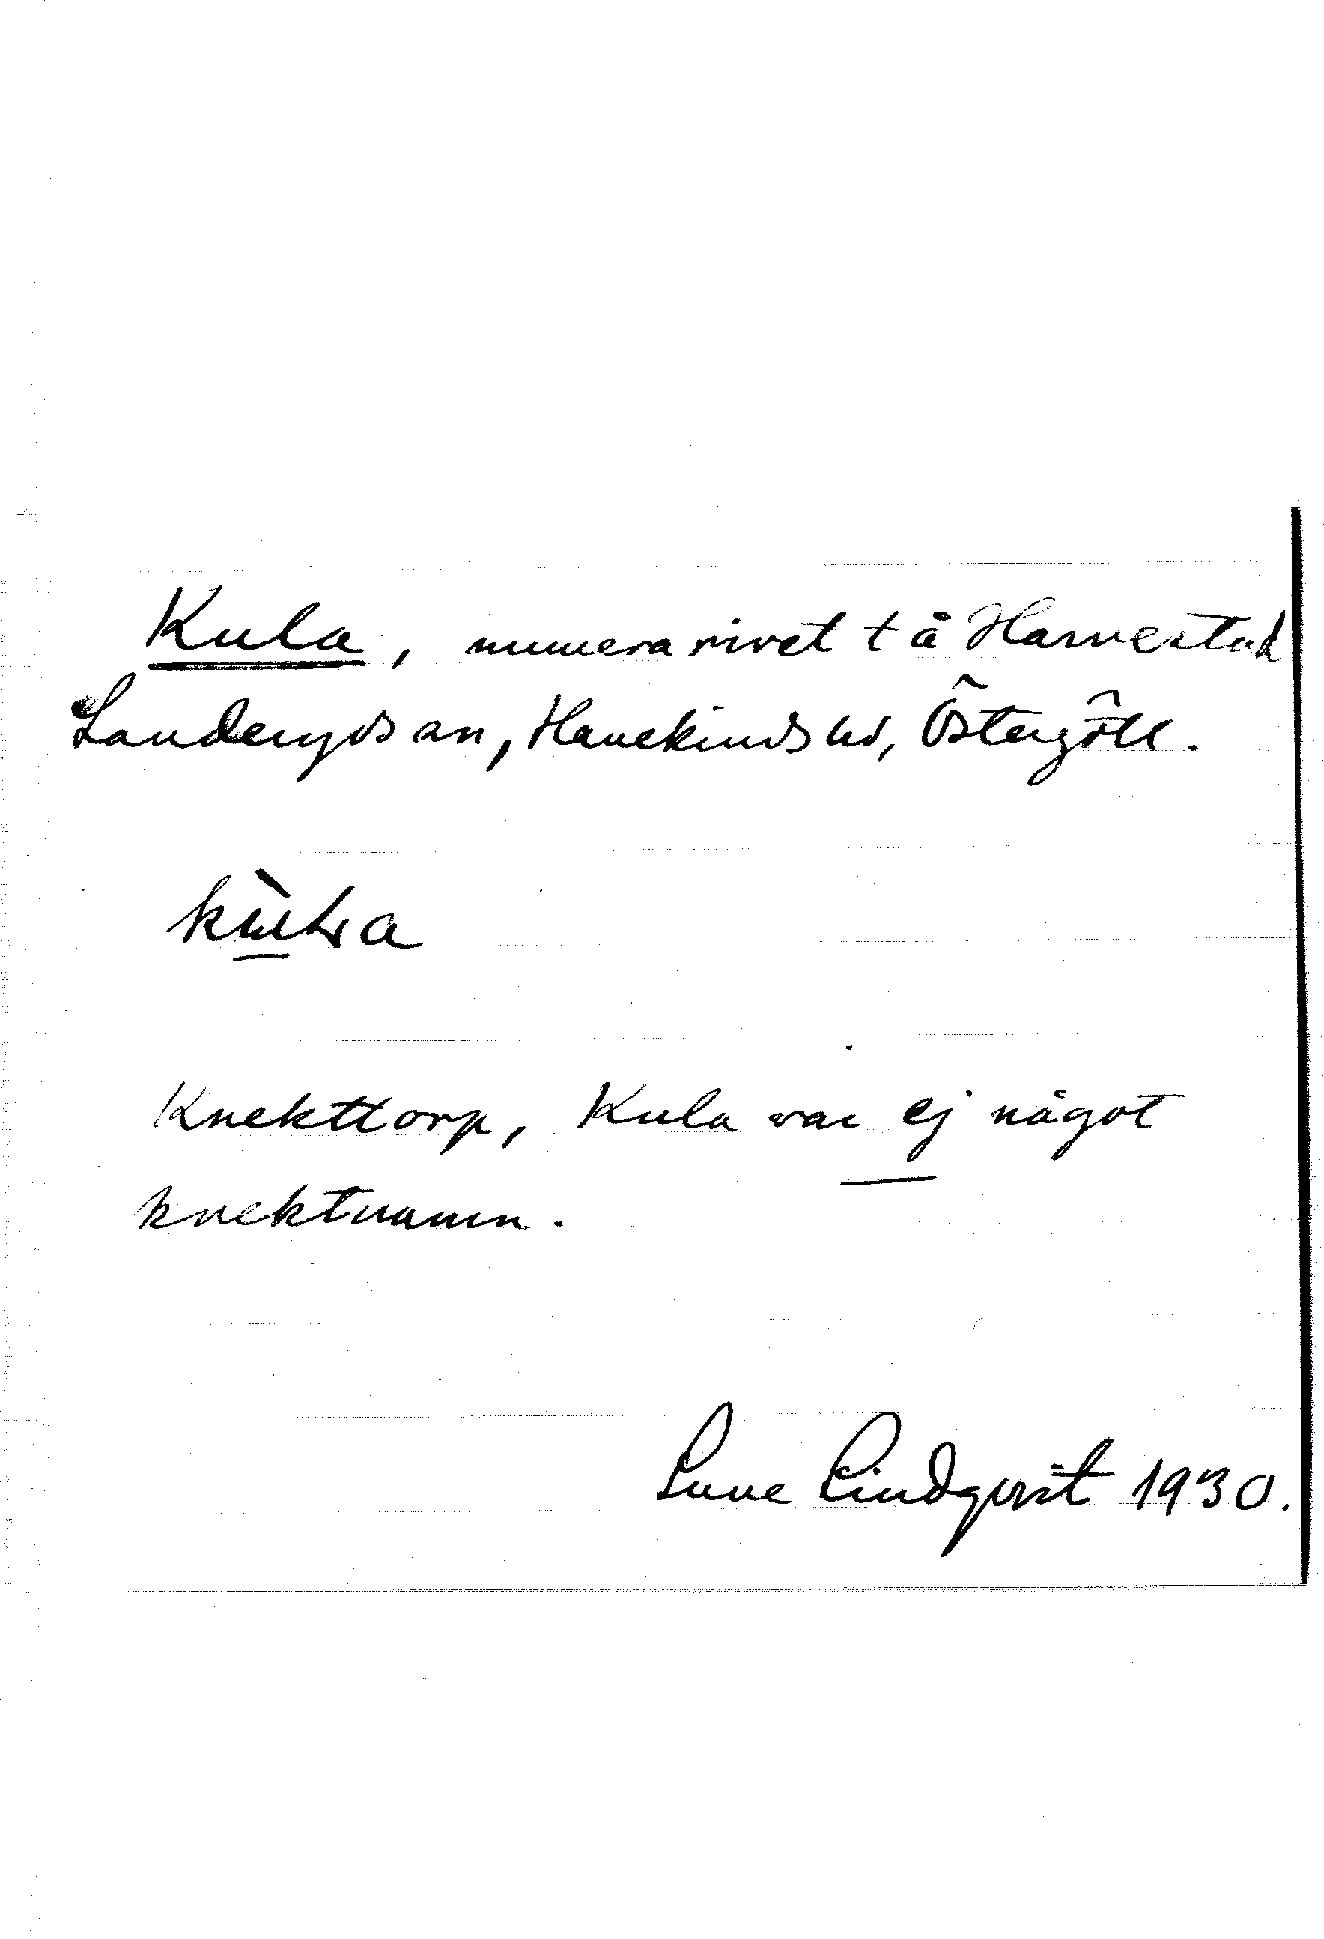 Kula, numera rivet t å Harvestad
Landeryds sn, Hanekinds hd, Östergötl.
kùla
Knekttorp, Kula var ej något
knektnamn.
Sune Lindqvist 1930.